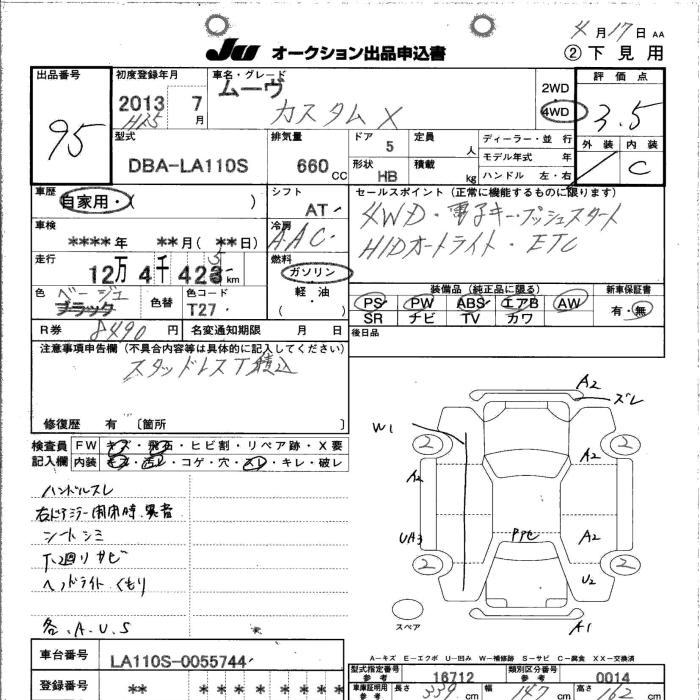 4月17日 AA
JU オークション出品申込書 ②下見用
出品番号 初度登録年月 車名・グレード 評価点
95 2013 7月 ムーヴ 2WD 3.5
H25 カスタムX 4WD
型式 排気量 ドア 5 定員 人 ディーラー・並行 外装 内装
DBA-LA110S 660CC 形状 HB 積載 kg モデル年式 年 C
ハンドル 左・右
車歴 自家用・( ) シフト AT セールスポイント(正常に機能するものに限ります)
車検 ****年 **月(**日) 冷房 AAC 4WD・電子キー・プッシュスタート
HIDオートライト・ETC
走行 12万4千423km 5 燃料 ガソリン 軽・油 ( )
装備品(純正品に限る) 新車保証書
色 ベージュ ブラック 色替 色コード T27 PS PW ABS エアB AW 有・無
SR ナビ TV カワ
R券 8490円 名変通知期限 月 日 後日品
注意事項申告欄(不具合内容等は具体的に記入してください)
スタッドレスT積込
修復歴 有 〔箇所 〕
検査員記入欄 FW キズ・飛石・ヒビ割・リペア跡・X要
内装 キズ・汚レ・コゲ・穴・スレ・キレ・破レ
ハンドルスレ
右ドアミラー開閉時異音
シートシミ
下廻りサビ
ヘッドライトくもり
各.A.U.S
A2 ズレ
W1
2 2
A2 A2
UA3 PPセ A2
2 U2 2
スペア A1
A-キズ E-エクボ U-凹み W-補修跡 S-サビ C-腐食 XX-交換済
車台番号 LA110S-0055744
型式指定番号 参考 16712 類別区分番号 参考 0014
登録番号 ** * * * * * *
車庫証明用 参考 長さ 339cm 幅 147cm 高さ 162cm